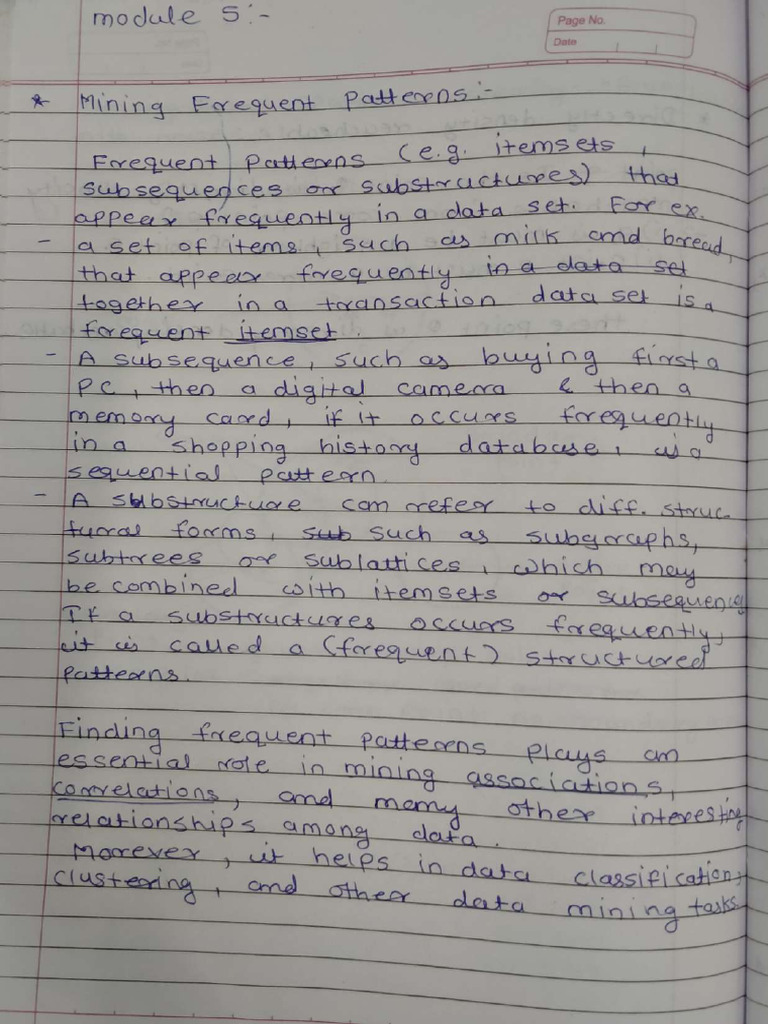 module 5:-
Page No.
Date
* Mining Frequent Patterns:-
Frequent Patterns (e.g. itemsets,
subsequences or substructures) that
appear frequently in a data set. For ex.
- a set of items, such as milk and bread,
that appear frequently in a data set
together in a transaction data set is a
frequent itemset.
- A subsequence, such as buying first a
PC, then a digital camera & then a
memory card, if it occurs frequently
in a shopping history database, is a
sequential pattern.
- A substructure can refer to diff. struc
tural forms, sub such as subgraphs,
subtrees or sublattices, which may
be combined with itemsets or subsequences
If a substructures occurs frequently,
it is called a (frequent) structured
patterns.
Finding frequent patterns plays an
essential role in mining associations,
correlations, and many other interesting
relationships among data.
Morever, it helps in data classification,
clustering, and other data mining tasks